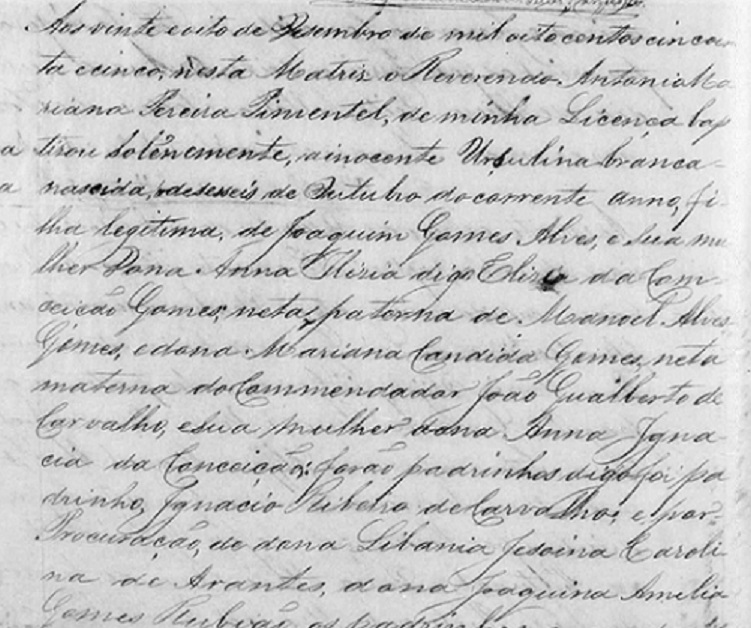 Aos vinte e oito de Desembro de mil oito centos cincoen
ta e cinco, nesta Matriz o Reverendo Antonio Ma
riana Pereira Pimentel, de minha Licença bap
a tisou solenemente, a inocente Ursulina branca
a nascida, a deseseis de Outubro do corrente anno, fi-
lha legitima, de Joaquim Gomes Alves, e sua mu
lher Dona Anna Eliria digo Eliria da Com-
ceicão Gomes, neta, paterna de Manoel Alves
Gomes, e dona Mariana Candida Gomes, neta
materna do Commendador João Gualberto de
Carvalho, e sua mulher dona Anna Igna-
cia da Conceição; forão padrinhos digo foi pa
drinho, Ignacio Ribeiro de Carvalho, e, por
Procuração, de dona Libania Jesoina Caroli
na de Arantes, dona Joaquina Amelia
Gomes Rubião os padrinhos